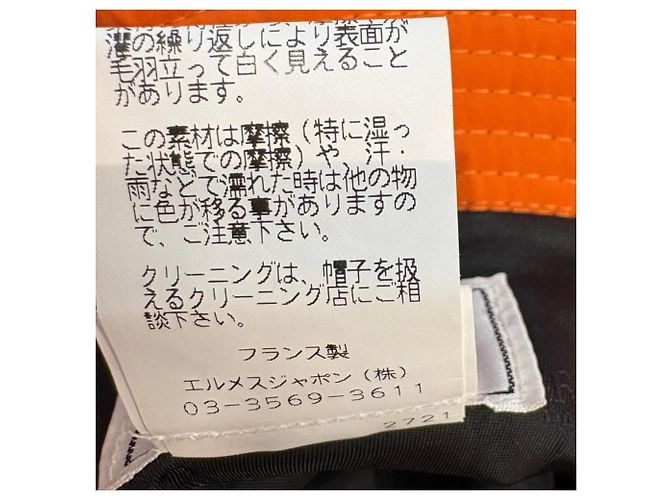 濯の繰り返しにより表面が
毛羽立って白く見えること
があります。
この素材は摩擦（特に湿っ
た状態での摩擦）や、汗・
雨などで濡れた時は他の物
に色が移る事がありますの
で、ご注意下さい。
クリーニングは、帽子を扱
えるクリーニング店にご相
談下さい。
フランス製
エルメスジャポン（株）
03-3569-3611
2721